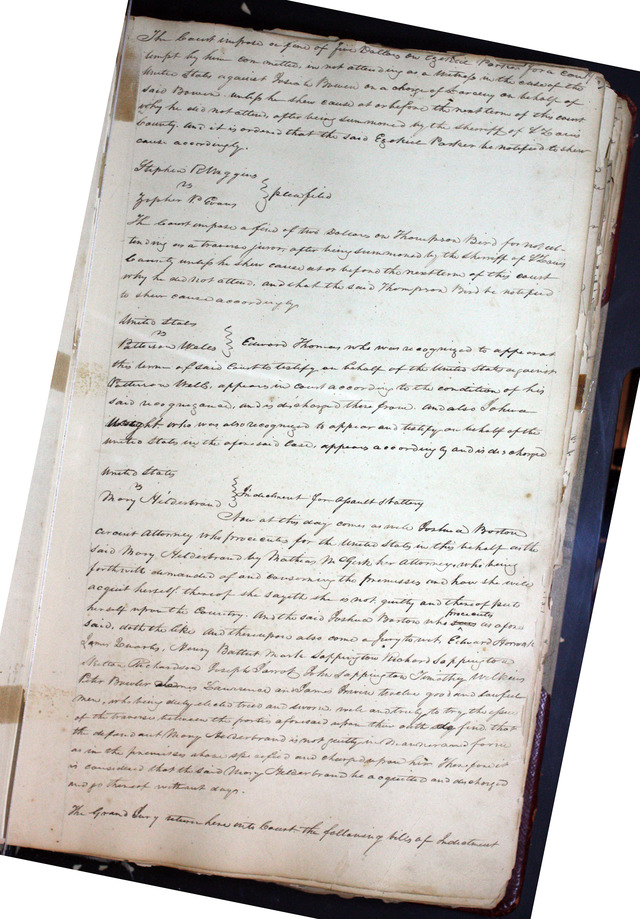 The Court impose a fine of five Dollars on Ezekiel Parker for a con
tempt by him committed, in not attending as a witness in the case of the
United States against Josiah Bowen on a charge of Larceny on behalf of
said Bowen, unless he shew cause at or before the next term of this court
why he did not attend, after being summoned by the sherriff of St Louis
County. And it is ordered that the said Ezekiel Parker be notified to shew
cause accordingly.
Stephen R Wiggins
vs } plea filed
Zepher Evans
The Court impose a fine of two Dollars on Thompson Bird for not at-
tending as a traverse juror, after being summoned by the sherriff of St Louis
County unless he shew cause at or before the next term of this court
why he did not attend, and that the said Thompson Bird be notified
to shew cause accordingly.
United States
vs
Patterson Walls } Edward Thomas who was recognized to appear at
this term of said Court to testify on behalf of the United States against
Patterson Walls, appears in court according to the condition of his
said recognizance, and is discharged there from. And also Joshua
who, was also recognized to appear and testify on behalf of the
United States in the aforesaid case, appears accordingly and is discharged
United States
vs } Indictment for Assault & Battery
Mary Hilderbrand
Now at this day comes as well Joshua Barton
circuit Attorney who prosecutes for the United States in this behalf as the
said Mary Helderbrand by Mathias McGirk her Attorney, who being
forthwith demanded of and concerning the premises and how she will
acquit herself thereof she sayeth she is not guilty and thereof puts
herself upon the Country. And the said Joshua Barton who prosecutes as afore
said, doth the like And thereupon also come a Jury to wit, Edward Horrock
James Edwards, Henry Battest Mark Sappington Richard Sappington
Richardson Joseph Jarrot John Sappington Timothy Wilkins
Peter Bowler James Lawrence and James Irwin twelve good and lawful
men, who being duly elected tried and sworn well and truly to try the issue
of the traverse between the parties aforesaid upon their oath do find that
the defendant Mary Helderbrand is not guilty in manner and form
as in the premises above specified and charged upon him Therefore it
is considered that the said Mary Helderbrand be acquitted and discharged
and go thereof without day.
The Grand Jury return here into Court the following bills of Indictment